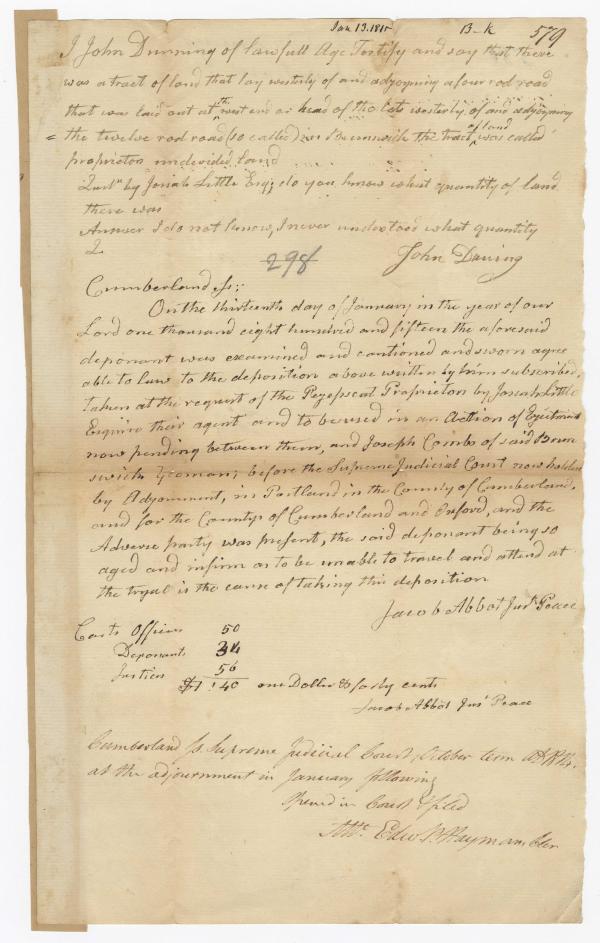 Jan 13. 1815 B-k 579
I John Dunning of lawfull Age Testify and say that there
was a tract of land that lay westerly of and adjoyning a four rod road
that was laid out at the west end or head of the lots westerly of and adjoyning
the twelve rod road (so called) in Brunswick the tract of land was called
proprietors undivided land
Quest.n by Josiah Little Esq; do you know what quantity of land
there was
Answer I do not know, I never understood what quantity
Q
298 John Duning
Cumberland Ss;
On the thirteenth day of January in the year of our
Lord one thousand eight hundred and fifteen the aforesaid
deponant was examined and cautioned and sworn agree
able to law to the deposition above written by him subscribed,
taken at the request of the Pejepscot Proprietors by Josiah Little
Esquire their agent and to be used in an Action of Ejectment
now pending between them, and Joseph Combs of said Brun
swick Yeoman; before the Supreme Judicial Court now holden
by Adjornment, in Portland in the County of Cumberland,
and for the Countys of Cumberland and Oxford, and the
Adverse party was present, the said deponant being so
aged and infirm as to be unable to travel and attend at
the tryal is the cause of taking this deposition
Jacob Abbot Jus. Peace
Costs Officer 50
Deponants 34
Justices 56
$1.40 one Dollar & forty cents
Jacob Abbot Jus. Peace
Cumberland Ss. Supreme Judicial Court, October term AD 1814.
at the adjournment in January following
Opened in Court & filed
Att. Edw. Wayman Cler